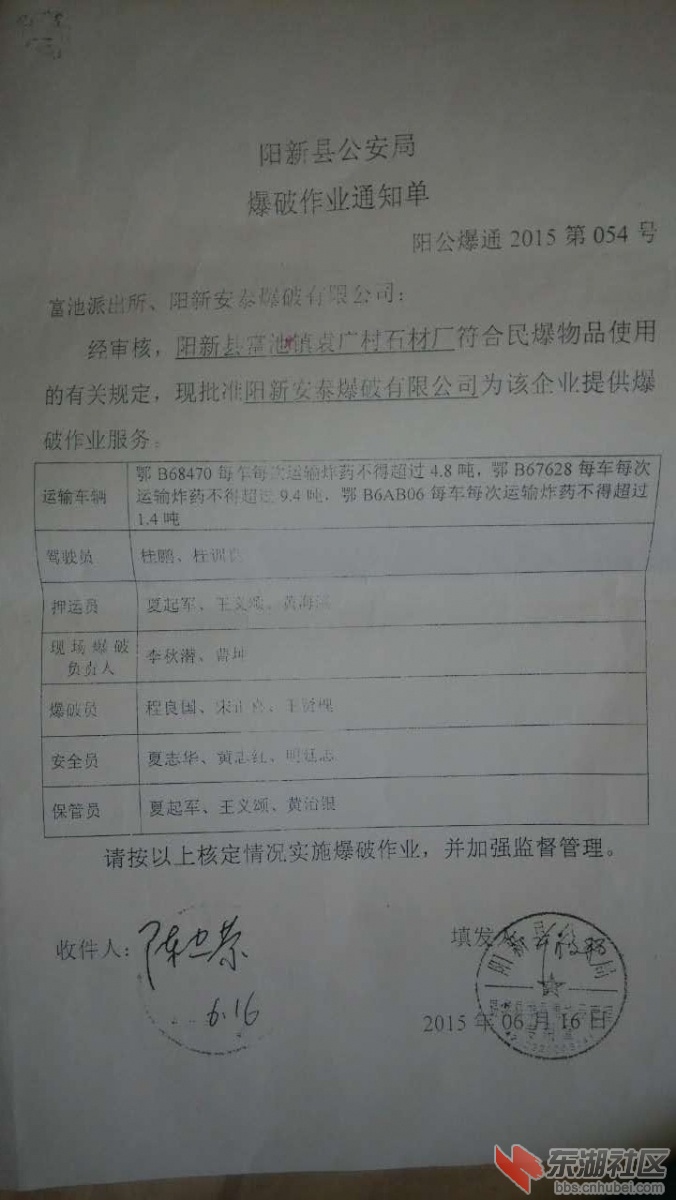 阳新县公安局
爆破作业通知单
阳公爆通 2015 第 054 号
富池派出所、阳新安泰爆破有限公司：
经审核，阳新县富池镇袁广村石材厂符合民爆物品使用
的有关规定，现批准阳新安泰爆破有限公司为该企业提供爆
破作业服务：
运输车辆
鄂 B68470 每车每次运输炸药不得超过 4.8 吨，鄂 B67628 每车每次
运输炸药不得超过 9.4 吨，鄂 B6AB06 每车每次运输炸药不得超过
1.4 吨
驾驶员
柱鹏、柱训
押运员
夏起军、王义颂、黄海
现场爆破
负责人
李秋潜、曹坤
爆破员
程良国、宋正、王贤
安全员
夏志华、黄志红、明廷志
保管员
夏起军、王义颂、黄治银
请按以上核定情况实施爆破作业，并加强监督管理。
收件人：
6.16
填发人
阳新局
2015 年 06 月 16 日
东湖社区
bbs.cnhubei.com